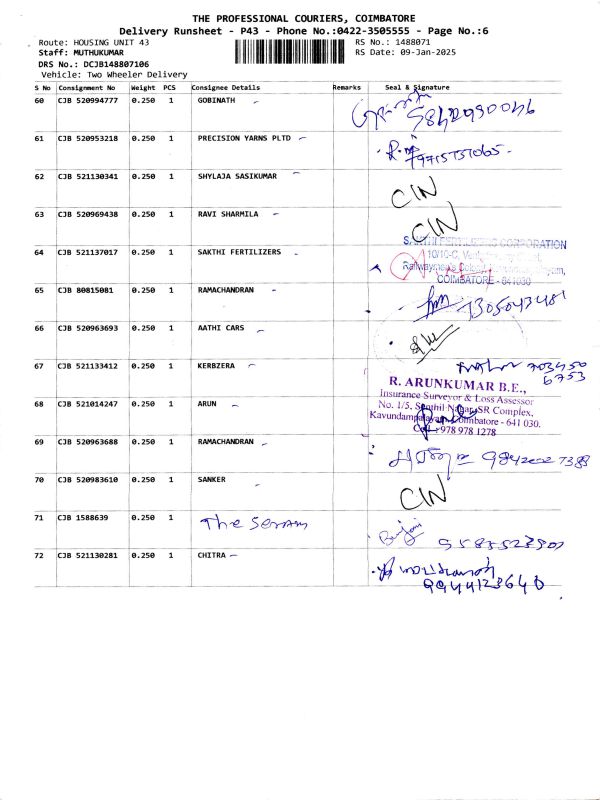 THE PROFESSIONAL COURIERS, COIMBATORE
Delivery Runsheet - P43 - Phone No.:0422-3505555 - Page No.:6
Route: HOUSING UNIT 43
Staff: MUTHUKUMAR
DRS No.: DCJB148807106
Vehicle: Two Wheeler Delivery
RS No.: 1488071
RS Date: 09-Jan-2025
S No Consignment No Weight PCS Consignee Details Remarks Seal & Signature
60 CJB 520994777 0.250 1 GOBINATH
61 CJB 520953218 0.250 1 PRECISION YARNS PLTD
62 CJB 521130341 0.250 1 SHYLAJA SASIKUMAR CIN
63 CJB 520969438 0.250 1 RAVI SHARMILA CIN
SAKTHI FERTILIZERS CORPORATION
64 CJB 521137017 0.250 1 SAKTHI FERTILIZERS
COIMBATORE - 641030
65 CJB 80815081 0.250 1 RAMACHANDRAN
66 CJB 520963693 0.250 1 AATHI CARS
67 CJB 521133412 0.250 1 KERBZERA 703450
6753
R. ARUNKUMAR B.E.,
Insurance Surveyor & Loss Assessor
68 CJB 521014247 0.250 1 ARUN
No. 1/5, Senthil Nagar, SR Complex,
Kavundampalayam, Coimbatore - 641 030.
Cell : 978 978 1278
69 CJB 520963688 0.250 1 RAMACHANDRAN
70 CJB 520983610 0.250 1 SANKER CIN
71 CJB 1588639 0.250 1 The Seram
72 CJB 521130281 0.250 1 CHITRA
9944123640